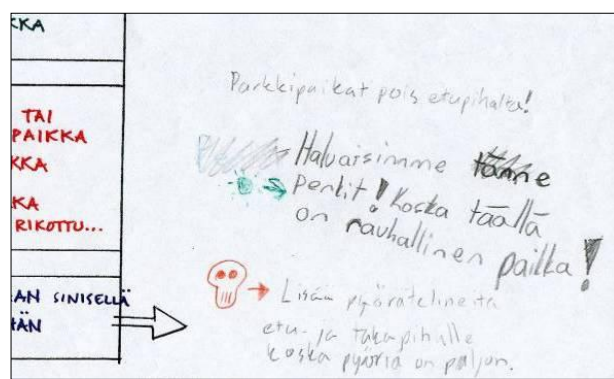 KKA
TAI
PAIKKA
KKA
KA
RIKOTTU...
AN SINISELLÄ
HÄN
Parkkipaikat pois etupihalta!
Haluaisimme tänne
penkit! Koska täällä
on rauhallinen paikka!
Lisää pyörätelineitä
etu- ja takapihalle
koska pyöriä on paljon.